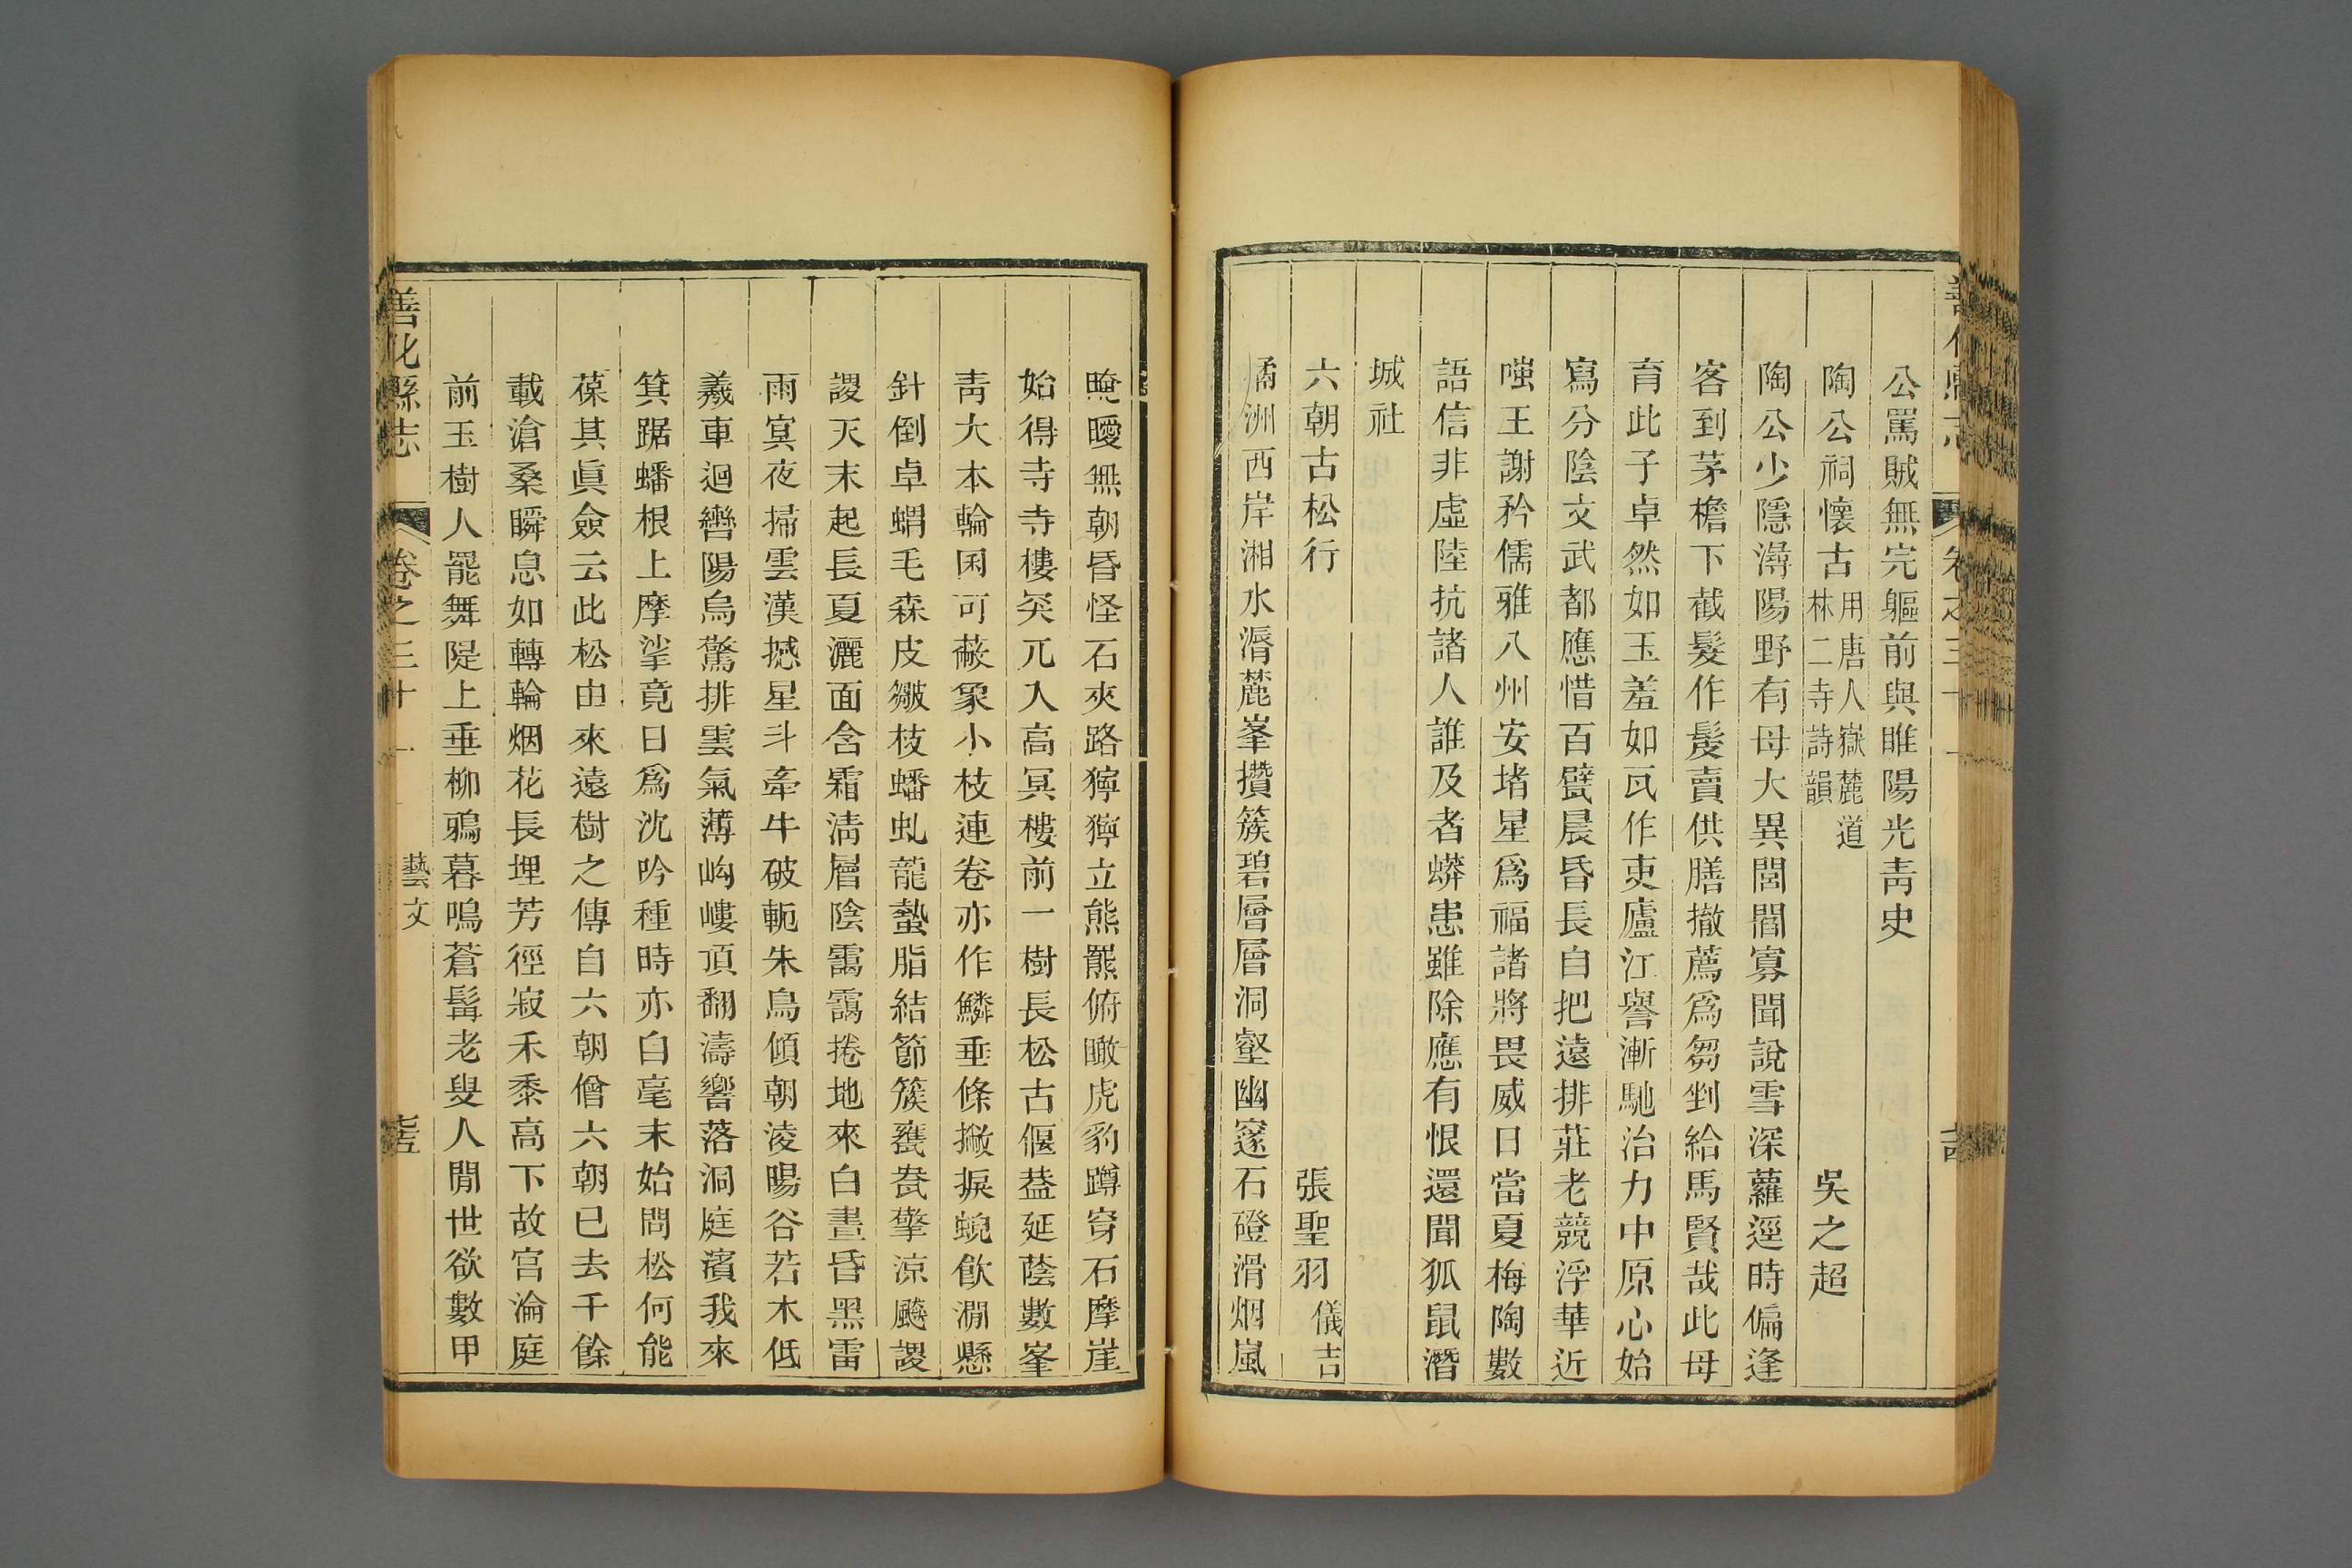 公罵賊無完軀前與睢陽光靑史
陶公祠懷古用唐人嶽麓道林二寺詩韻 吳之超
陶公少隱潯陽野有母大異閭閻寡聞說雪深蘿逕時偏逢
客到茅檐下截髮作髲賣供膳撤薦爲芻剉給馬賢哉此母
育此子卓然如玉羞如瓦作吏廬江譽漸馳治力中原心始
寫分陰文武都應惜百甓晨昏長自把遠排莊老競浮華近
嗤王謝矜儒雅八州安堵星爲福諸將畏威日當夏梅陶數
語信非虛陸抗諸人誰及者蟒患雖除應有恨還聞狐鼠潛
城社
六朝古松行 張聖羽儀吉
橘洲西岸湘水漘麓峯攢簇碧層層洞壑幽邃石磴滑烟嵐
晻曖無朝昏怪石夾路獰獰立熊羆俯瞰虎豹蹲穿石摩崖
始得寺寺樓突兀入高冥樓前一樹長松古偃葢延蔭數峯
靑大本輪囷可蔽象小枝連卷亦作鱗垂條撇捩蜺飮澗懸
針倒卓蝟毛森皮皴枝蟠虬龍蟄脂結節簇甕瓮擎涼飈謖
謖天末起長夏灑面含霜淸層陰靄靄捲地來白晝昏黑雷
雨寘夜掃雲漢撼星斗牽牛破軛朱鳥傾朝淩暘谷若木低
羲車迴轡陽烏驚排雲氣薄岣嶁頂翻濤響落洞庭濱我來
箕踞蟠根上摩挲竟日爲沈吟種時亦自毫末始問松何能
葆其眞僉云此松由來遠樹之傳自六朝僧六朝已去千餘
載滄桑瞬息如轉輪烟花長埋芳徑寂禾黍高下故宮淪庭
前玉樹人罷舞隄上垂柳鴉暮鳴蒼髯老叟人閒世欲數甲
善化縣志 卷之三十一 藝文